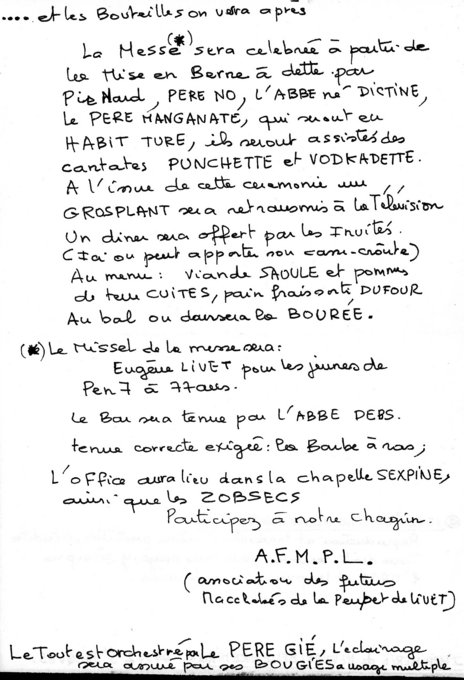 .... et les Bouteilles on verra après
La Messe (*) sera celebrée à partir de
la Mise en Berne à dette par
Pie Nard, PERE NO, L'ABBE né DICTINE,
le PERE MANGANATE, qui seront en
HABIT TURE, ils seront assistés des
cantates PUNCHETTE et VODKADETTE.
A l'issue de cette ceremonie un
GROSPLANT sera retransmis à la Télévision
Un diner sera offert par les Invités.
(Ia ou peut apporter son casse-croûte)
Au menu : viande SAOULE et pommes
de terre CUITES, pain frais sorti DUFOUR
Au bal on dansera la BOURÉE.
(*) Le Missel de la messe sera :
Eugène LIVET pour les jeunes de
Pen 7 à 77 ans.
Le Bar sera tenue par L'ABBE DEBS.
tenue correcte exigée : la Barbe à ras ;
L'office aura lieu dans la chapelle SEXPINE,
ainsi que les ZOBSECS
Participez à notre chagrin.
A.F.M.P.L.
(association des futurs
Macchabés de la Peupet de LIVET)
Le Tout est orchestré par Le PERE GIÉ, L'eclairage
sera assuré par ses BOUGIES a usage multiple